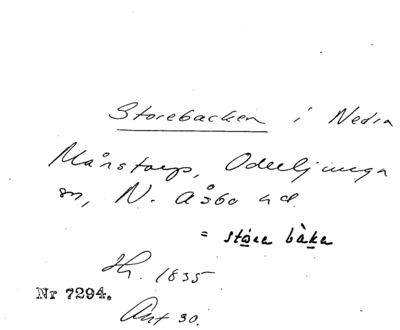 Storebacken i Nedra
Månstorp, Oderljunga
sn, N. Åsbo hd.
= stóra bàka
Hr. 1835
Nr 7294.
Ant 30.